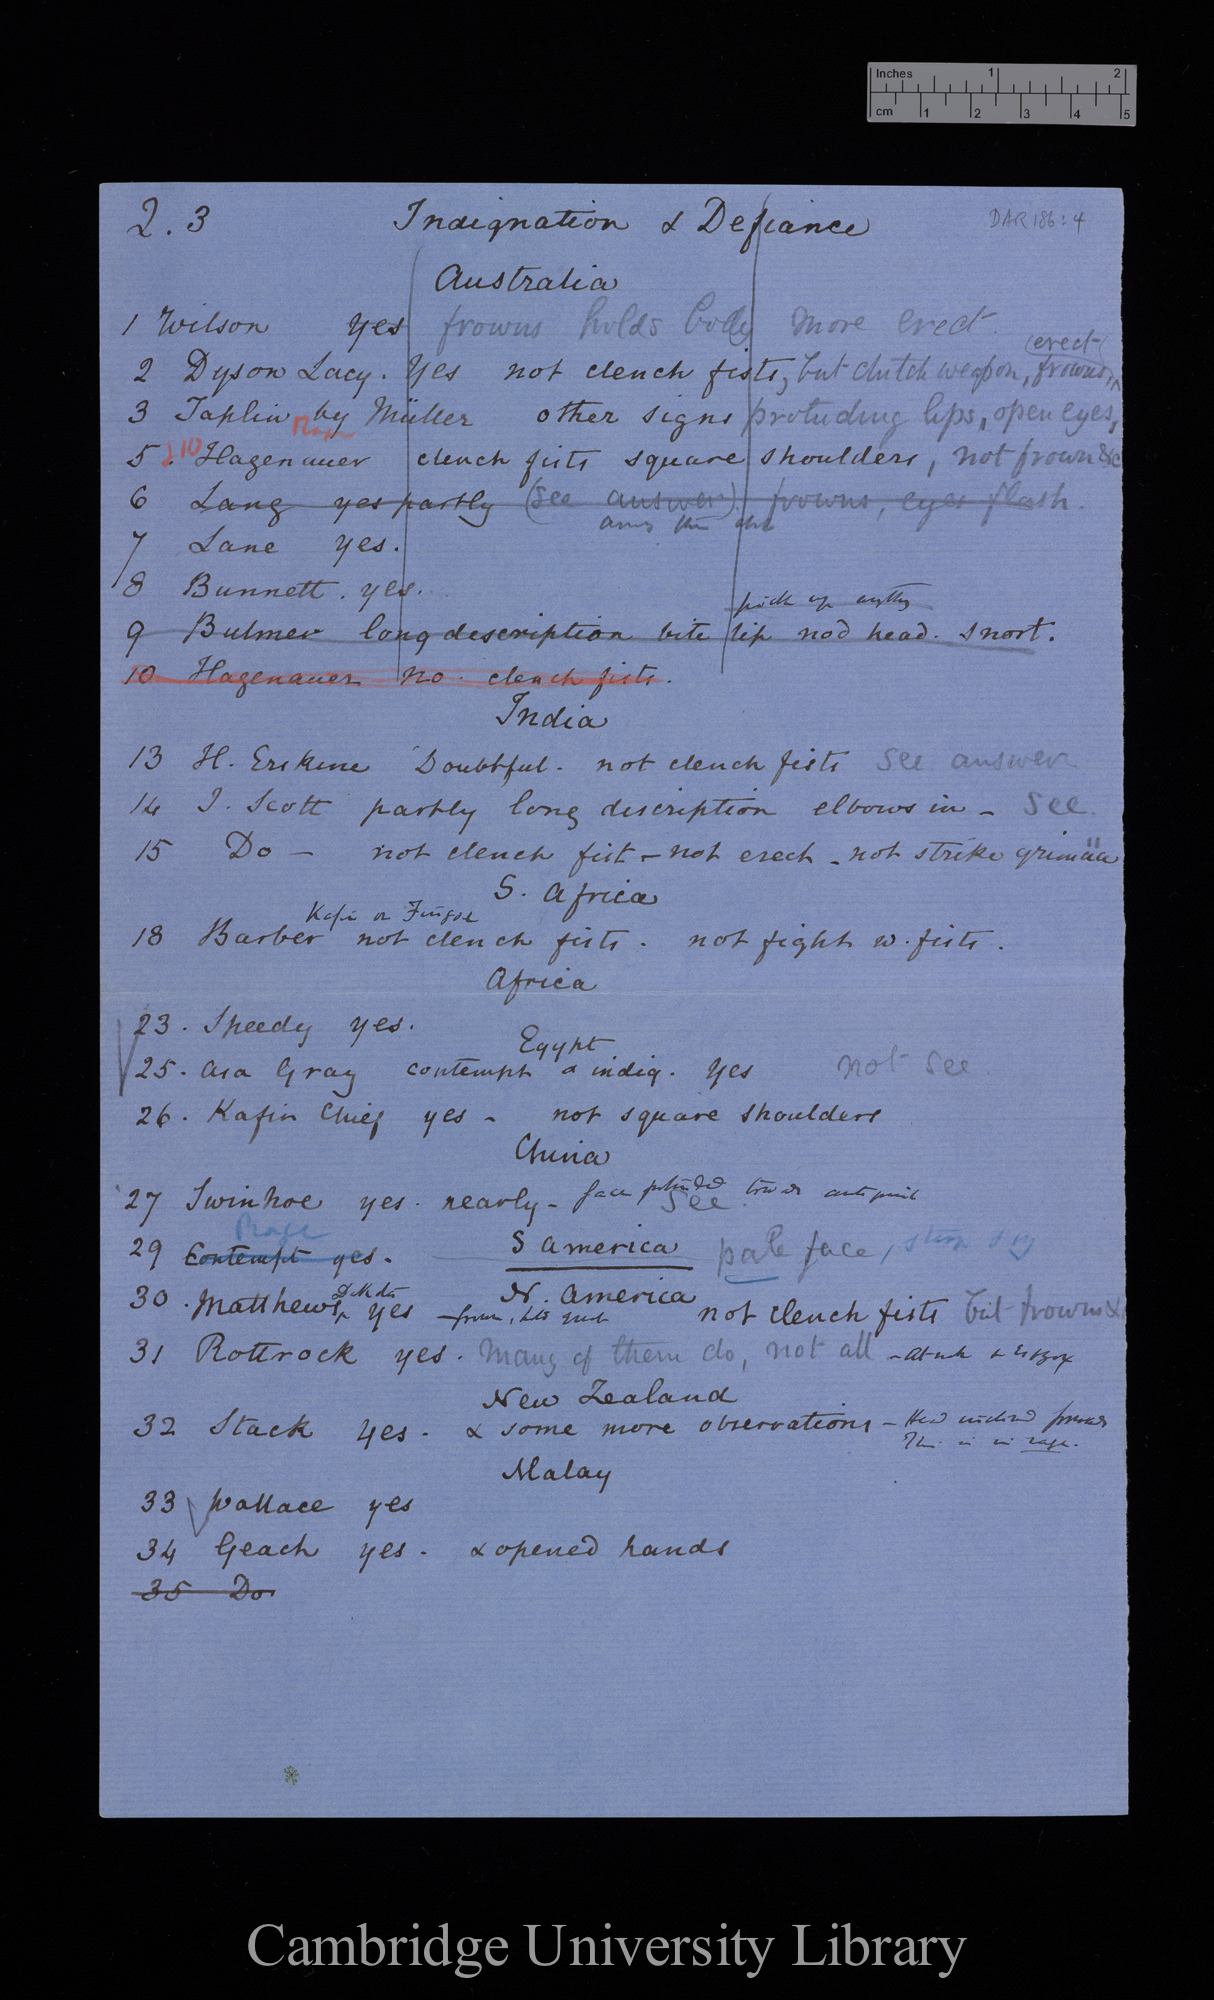 Inches 1 2
cm 1 2 3 4 5
2.3 Indignation & Defiance DAR 186:4
Australia
1 Wilson yes frowns holds body more erect.
erect
2 Dyson Lacy. Yes not clench fists, but clutch weapon, frowns,
3 Taplin by Müller other signs protuding lips, open eyes,
Rage
5. & 10 Hagenauer clench fists square shoulders, not frown &c
6 Lang yes partly (see answer). frowns, eyes flash.
7 Lane yes.
8 Bunnett. yes.
pick up
9 Bulmer long description bite lip nod head. snort.
10 Hagenauer no. clench fists.
India
13 H. Erskine Doubtful. not clench fists see answer
14 J. Scott partly long discription elbows in - see.
15 Do — not clench fist - not erect - not strike
S. Africa
Kafir or Fingoe
18 Barber not clench fists. not fight w. fists.
Africa
23. Speedy yes.
Egypt
25. Asa Gray contempt & indig. Yes not see
26. Kafir Chief yes - not square shoulders
China
27 Swinhoe yes. nearly - face towards antagonist
see
Rage
29 Contempt yes. S America pale face,
N. America
30. Matthews, yes - frown, not clench fists but frowns &
31 Rottrock yes. Many of them do, not all -
New Zealand
32 Stack yes. & some more observations - Head inclined forwards
This is in rage.
Malay
33 Wallace yes
34 Geach yes. & opened hands
35 Do
Cambridge University Library